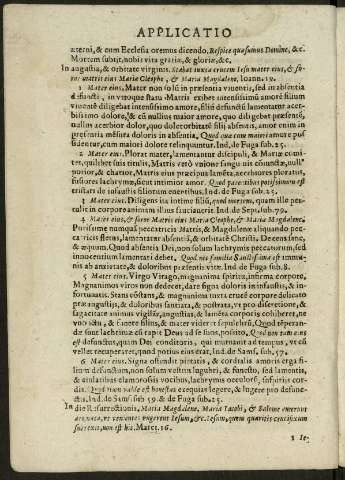 APPLICATIO
æterni, & cum Ecclesia oremus dicendo. Respice quæsumus Domine, &c.
Mortem subijt, nobis vita gratiæ, & gloriæ, &c.
In angustia, & orbitate virginis. Stabat iuxta crucem Iesu mater eius, & so-
ror matris eius Maria Cleophe, & Maria Magdalene. Ioann. 19.
1 Mater eius. Mater non solũ in præsentia viuentis, sed in absentia
defuncti, in vtroque statu Matris exibet intensissimũ amorẽ filium
viuentẽ diligebat intensissimo amore, filiũ defunctũ lamentatur acer-
bissimo dolore,
nullus acerbior dolor, quo dolet orbitatẽ filij absentis, amor enim in
præsentia mẽsura doloris in absentia. Qua cum amore possi-
dentur, cum maiori dolore relinquuntur. Ind. de Fuga sub. 25.
2 Mater eius. Plorat mater, lamentantur discipuli, & Mariæ comi-
cet, quilibet suis titulis, Matris verò vnione sanguinis coniunctæ, nulli
potior, & charior, Matris eius præcipua lamẽta, acerbiores ploratus,
fusiores lachrymæ, sicut intimior amor. Quod parentibus potissimum est
tristari de infaustis filiorum euentibus. Ind. de Fuga sub. 25.
3 Mater eius. Diligens ita intime filiũ, quod moriens, quam ille per-
tulit in corpore animam illius sauciauerit. Ind. de Sepu. sub. 79.
4 Mater eius, & soror Matris eius Maria Cleophe, & Maria Magdalene.
Purissimæ nunquã peccatricis Matris, & Magdalenæ aliquando pec-
catricis fletus, lamentantur absentiã, & orbitatẽ Christi. Decens sanc,
& æquum. Quod absentiã Dei, non solum lachrymis peccatorum, sed
innocentium lamentari debet. Quod nec familia Sanctissima est immu-
nis ab anxietate, & doloribus præsentis vitæ. Ind. de Fuga sub. 8.
5 Mater eius. Virgo Virago, magnanima spiritu, infirma corpore.
Magnanimos viros non dedecet, dare signa doloris in infaustis, & in-
fortunatis. Stans cõstans, & magnanima iuxta crucẽ corpore delicato
præ angustijs, & doloribus sinistrata, & postrata, vt pro discretione, &
sagacitate animi vigilis, angustias, & lamẽta corporis cohiberet, ne
viuo ictu, & sciente filius, & mater viuẽret sepulchrũ. Quod
æ sunt lachrimæ ex rapit Deus ad se suos, posito. Quod non tam eius
est defunctus, quam Dei conditoris, qui humanit ad tempus, vt cũ
vellet recuperaret, quod potius eius erat. Ind. de Sans. sub. 57.
6 Mater eius. Signa ostendit pietatis, & cordialis amoris erga fi-
lium defunctum, non solum vestem lugubri, & funesto, sed lamentis,
& eiulatibus clamorosis vocibus, lachrymis osculosis, suspirijs cor-
dis. Quod non viale est honestas exequias legere, & lugere pro defun-
ctis. Ind. de Sans. sub. 59. & de Fuga sub. 25.
In die Resurrectionis. Maria Magdalene, Maria Iacobi, & Salome emerunt
aromata, vt venientes vngerent Iesum, & c. Iesum, quem quæritis crucifixum
surrexit, non est hic. Marc. 16.
1 Ie-